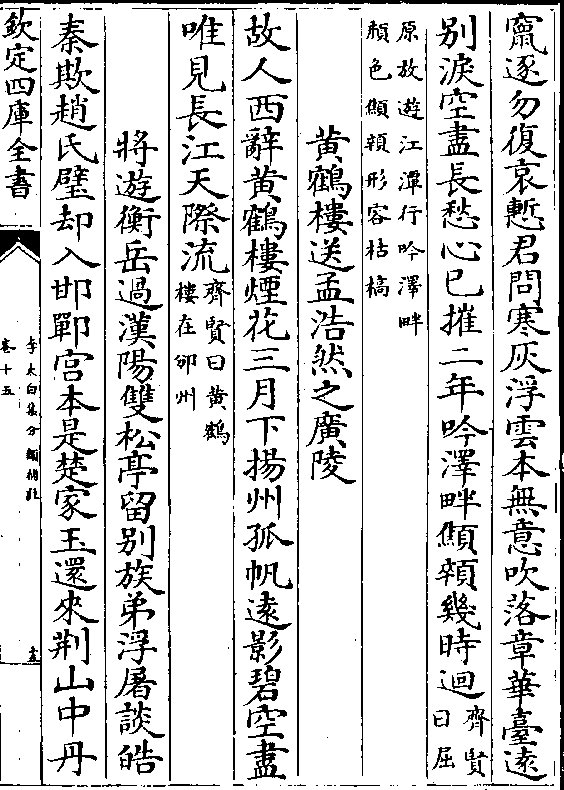 竄逐勿復哀慙君問寒灰浮雲本無意吹落章華臺遠
别淚空盡長愁心已摧二年吟澤畔顦顇幾時迴齊賢
曰屈
原放遊江潭行吟澤畔
顔色顦顇形容枯槁
黄鶴樓送孟浩然之廣陵
故人西辭黄鶴樓煙花三月下揚州孤帆逺影碧空盡
唯見長江天際流齊賢曰黄鶴
樓在鄂州
將遊衡岳過漢陽雙松亭留别族弟浮屠談皓
秦欺趙氏璧却入邯鄲宫本是楚家玉還來荆山中丹
欽定四庫全書
李太白集分類補註
卷十五